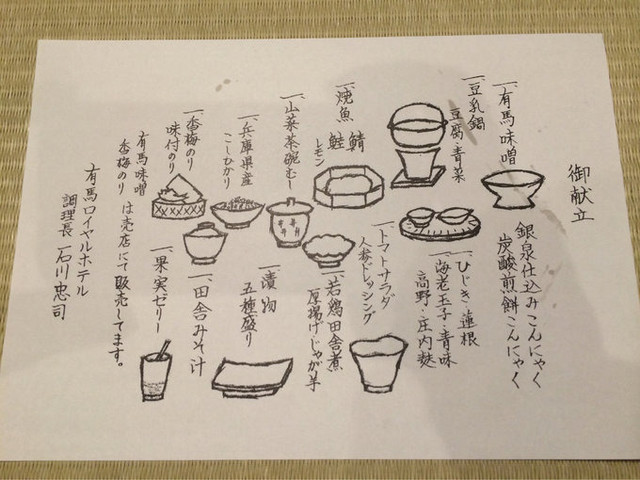 御献立
一、有馬味噌
銀泉仕込みこんにゃく
炭酸煎餅こんにゃく
一、豆乳鍋
豆腐・青菜
一、ひじき・蓮根
海老玉子・青味
高野・庄内麩
一、焼魚
鯖
鮭
レモン
一、トマトサラダ
人参ドレッシング
一、山菜茶碗むし
一、若鶏田舎煮
厚揚げ・じゃが芋
一、兵庫県産
こしひかり
一、漬物
五種盛り
一、香梅のり
味付のり
一、田舎みそ汁
一、果実ゼリー
有馬味噌
香梅のり
は売店にて販売してます。
有馬ロイヤルホテル
調理長 石川忠司